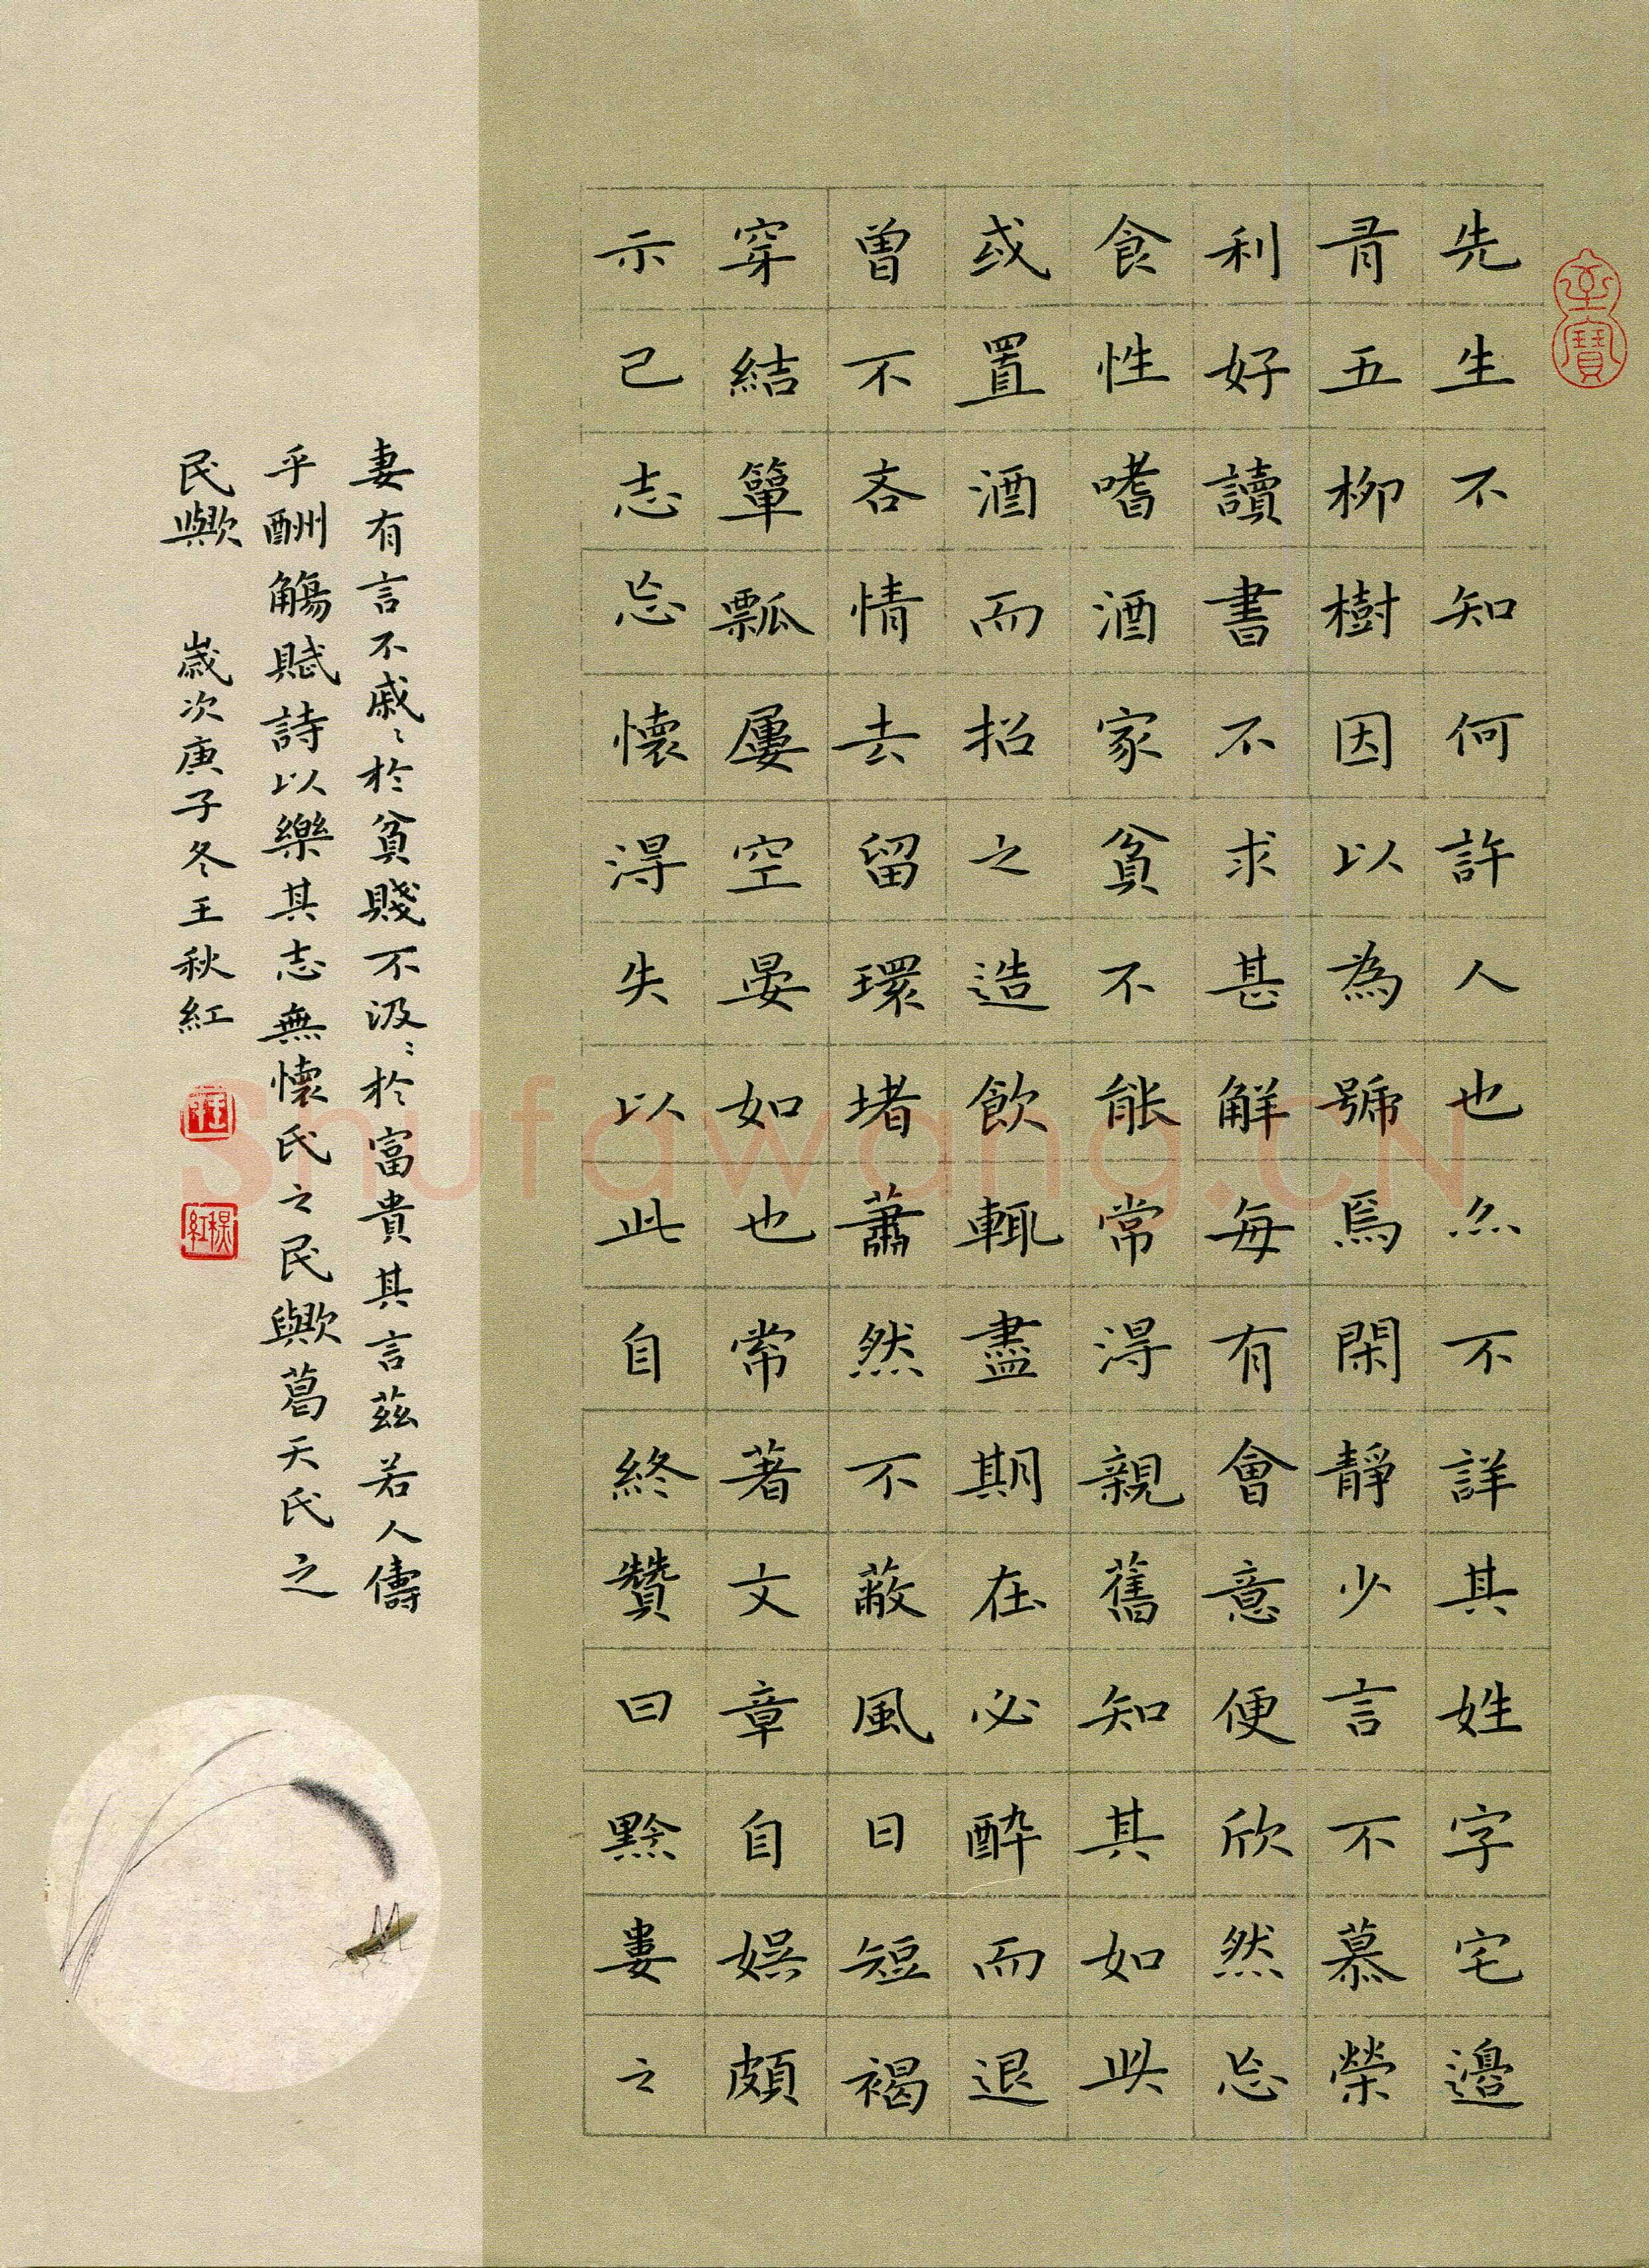 先生不知何許人也亦不詳其姓字宅邊
有五柳樹因以為號焉閑靜少言不慕榮
利好讀書不求甚解每有會意便欣然忘
食性嗜酒家貧不能常得親舊知其如此
或置酒而招之造飲輒盡期在必醉而退
曾不吝情去留環堵蕭然不蔽風日短褐
穿結簞瓢屢空晏如也常著文章自娛頗
示己志忘懷得失以此自終贊曰黔婁之
妻有言不戚〻於貧賤不汲〻於富貴其言茲若人儔
乎酬觴賦詩以樂其志無懷氏之民歟葛天氏之
民歟 歲次庚子冬王秋紅
至寶
Shufawang.CN